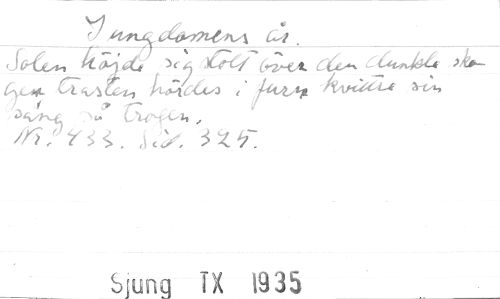 I ungdomens år.
Solen höjde sig stolt över den dunkla sko
gen trasten hördes i furn kvittra sin
sång så trogen.
Nr. 433. Sid. 325.
Sjung TX 1935